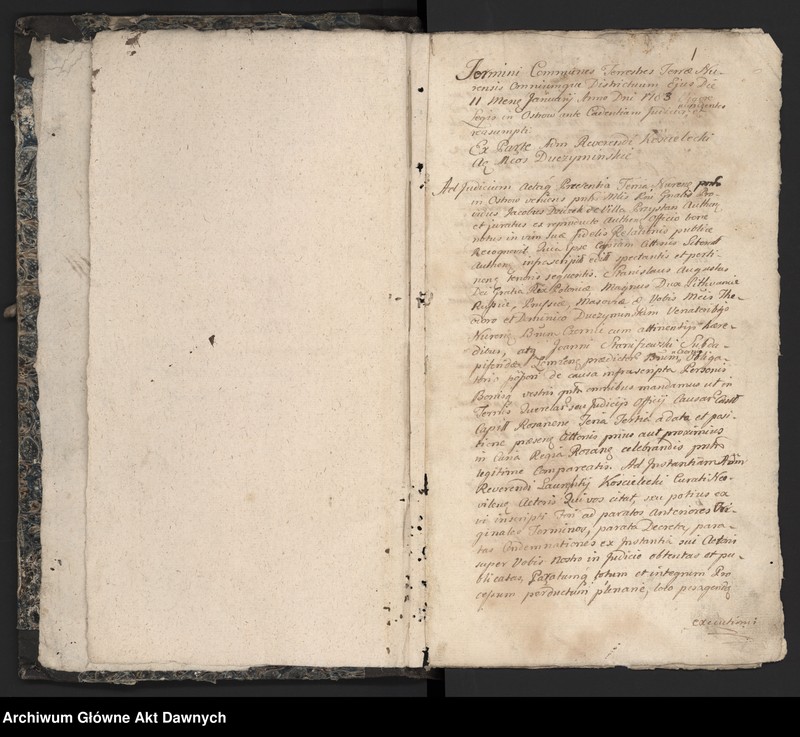 1
Termini Communes Terrestres Terræ Nu-
rensis Omniumque Districtuum Ejus Die
11 Mens Januarij Anno Dni
Leges in Ostrow ante Cadentiam Judicii
reassumpti
Ex Parte Adm Reverendi Koscielecki
Ac Mcos Duczyminskie
Ad Judicium Actaq Præsentia Terria Nurens
in Ostrow veniens
Jacobus de Villa Authen
et juratus ex reproducto Authen Officio bene
notus in vim suæ fidelis Relationis publice
Recognovit Quia ipse Copiam Cittonis
Authen infrascripti spectantis et perti-
nenς tenoris sequentis. Stanislaus Augustus
Dei Gratia Rex Poloniæ Magnus Dux Lithvaniæ
Russiæ, Prussiæ, Masoviæ Vobis Mcis The-
odoro et Dominico Duczyminskim Venatoribus
Bnrum Czernie cum attinentijs Hære-
ditus, atq Joanni Subda-
prædictor Bnrum, Obliga-
de causa infrascripta Personis
Bonisq vestris omnibus mandamus ut in
Termis Querelar seu Judicijs Officij Causar Castr
Capitl Rozanens Feria Tertia a data et posi-
tione præsens Cittonis prius aut proximius
in Curia Regia Rozanς celebrandis
legitime Compareatis. Ad Instantiam Adm
Reverendi Laurentij Koscielecki Curati
Actoris Qui vos citat, seu potius ex
vi inscripti ad paratos Anteriores Ori-
ginales Terminos, parata Decreta, para-
tas Condemnationes ex Instantia sui Actoris
super Vobis Nostro in Judicio obtentas et pu-
blicatas, Paratumq totum et integrum Pro
cessum perductum plenarie, loto peragendς
executioni
Archiwum Główne Akt Dawnych